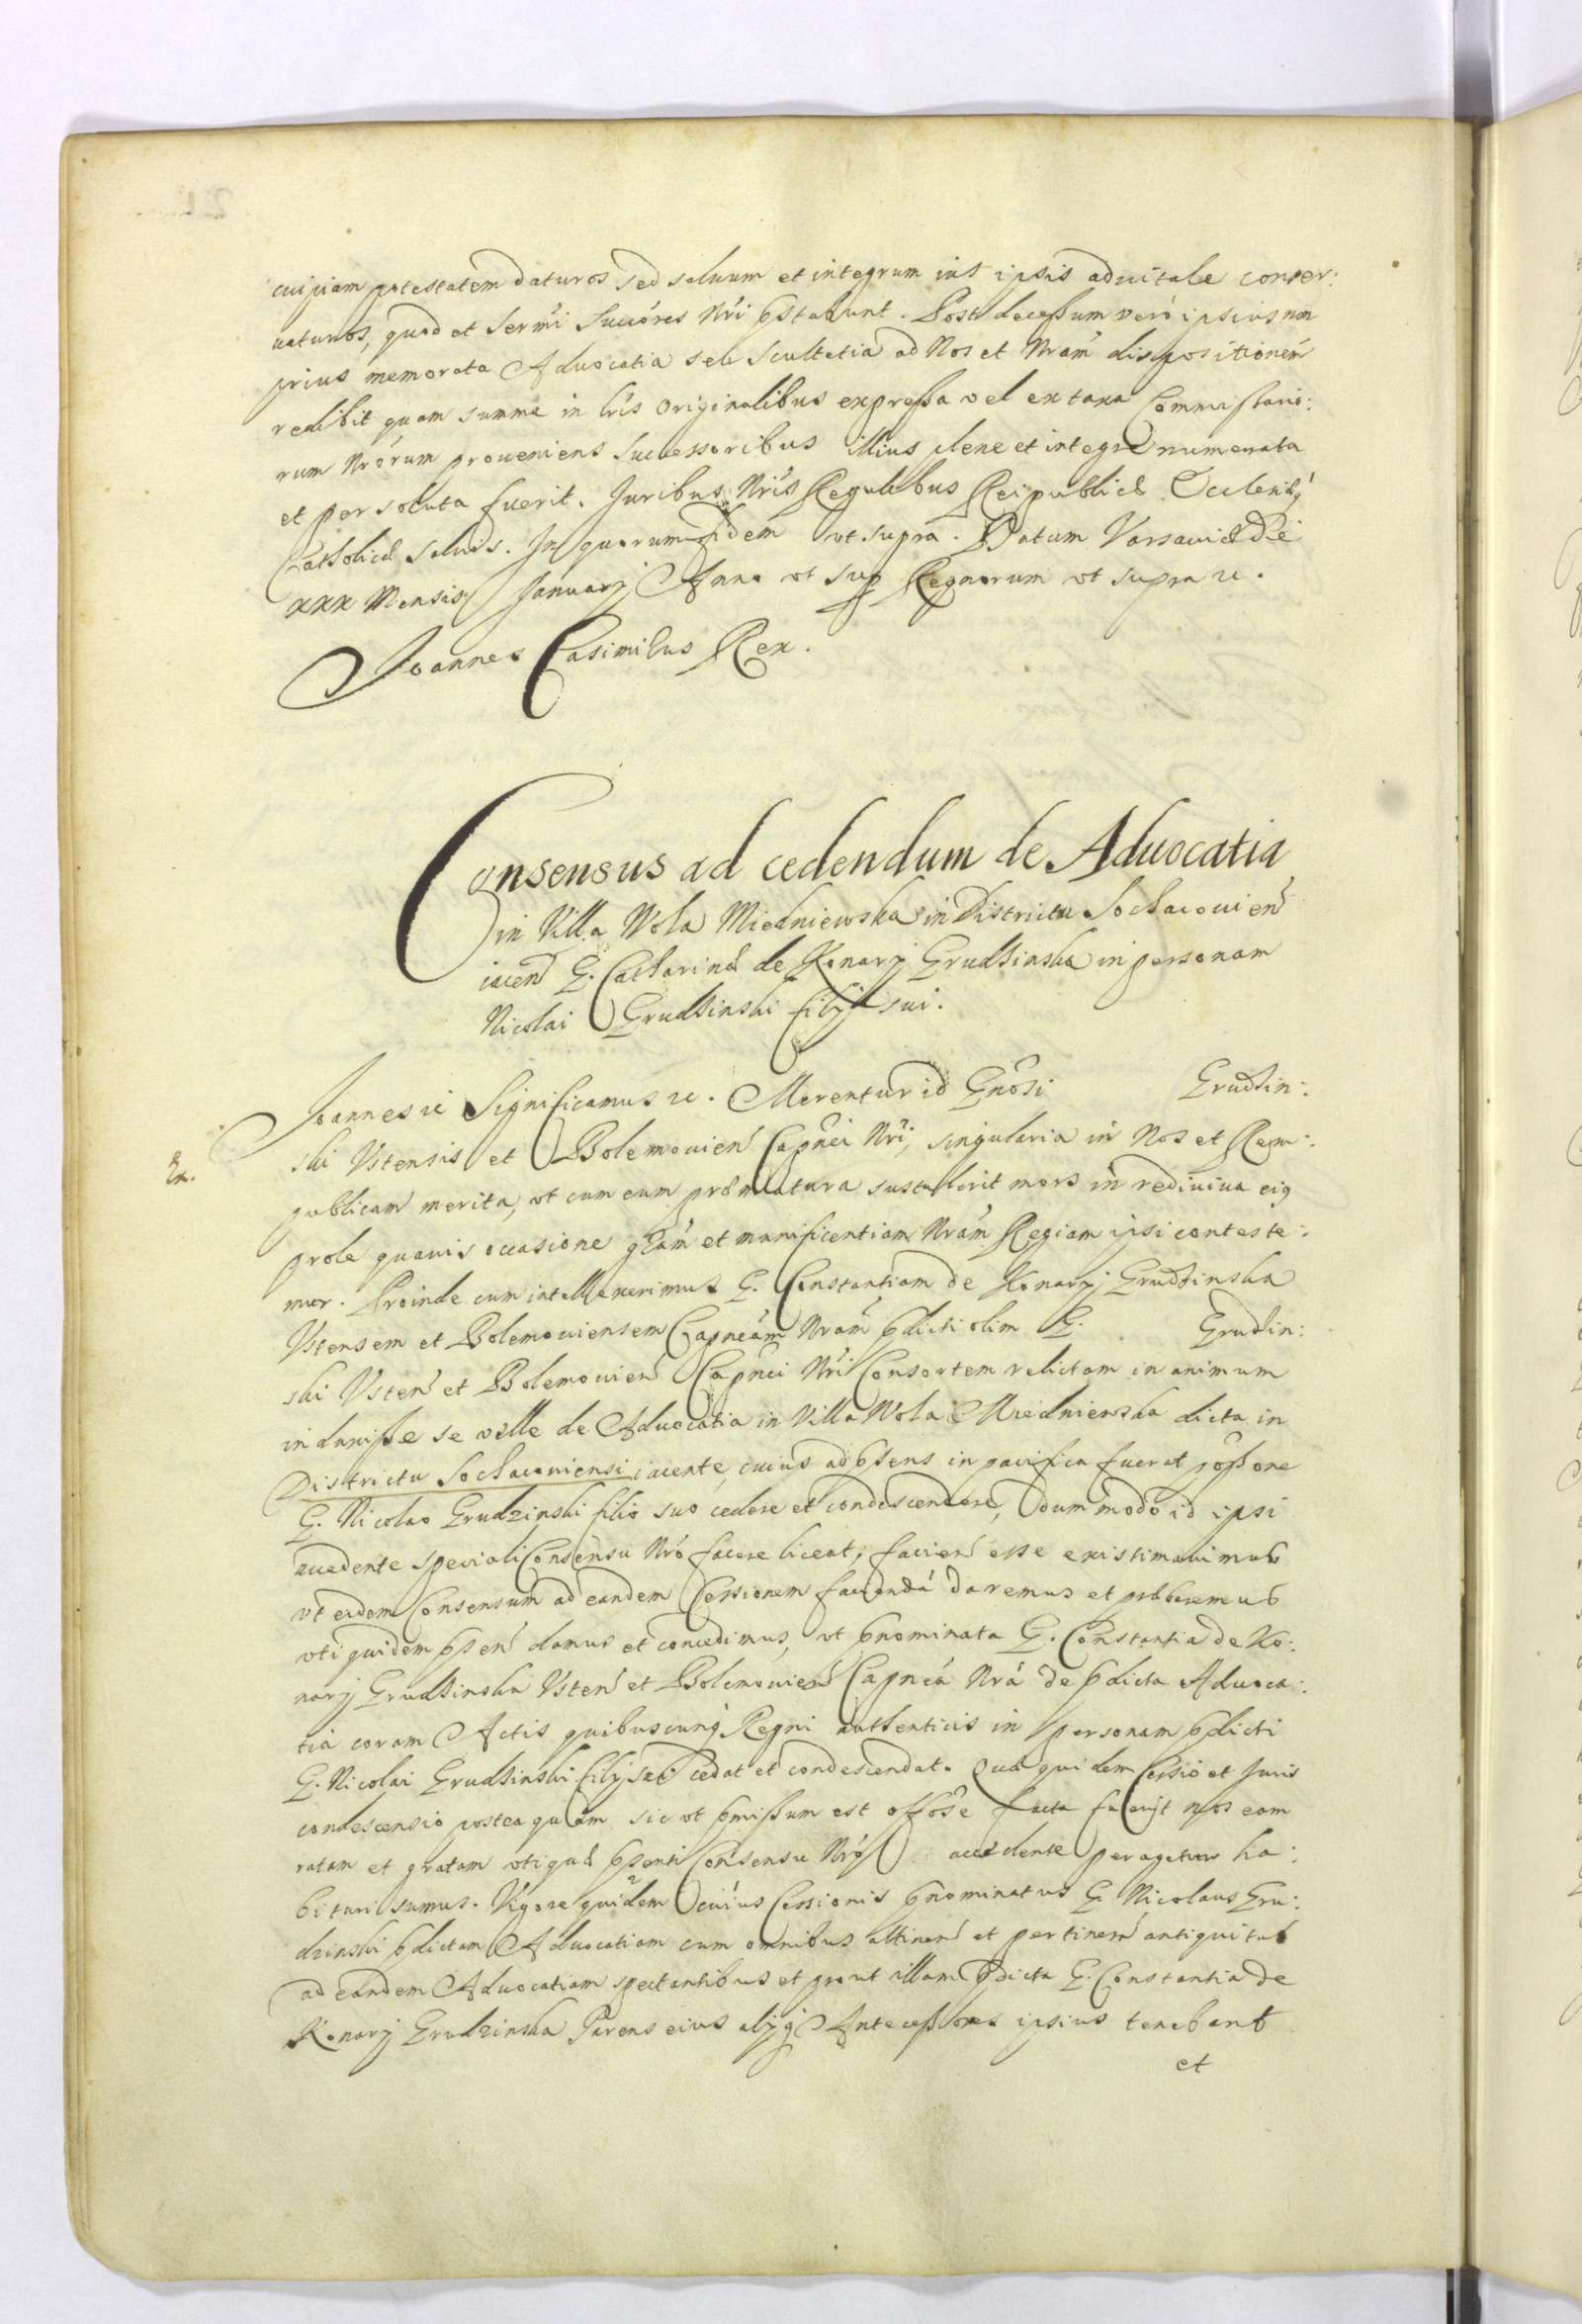 cuipiam potestatem daturos sed saluum et integrum ius ipsis aduitale conser:
uaturos, quod et Sermi Succores Nri pstabunt. Post decessum vero ipsius non
prius memorata Aduocatia seu Scultetia ad Nos et Nram dispositionem
redibit quam summa in lris originalibus expressa vel ex taxa Commissario:
rum Nrorum proueniens Successoribus illius plene et integre numerata
et persoluta fuerit. Juribus Nris Regalibus Reipublicæ Ecclesięq
Catholicæ saluis. In quorum fidem vt supra. Datum Varsauiæ Die
XXX Mensis Januarij Anno vt sup Regnorum vt supra etc.
Joannes Casimirus Rex.
Consensus ad cedendum de Aduocatia
in Villa Wola Miedniewska in Districtu Sochacouien
iacen G. Catharinæ de Konary Grudzinska in personam
Nicolai Grudzinski filij sui.
Joannes etc Significamus etc. Merentur id Gnosi Grudzin:
ski Vstensis et Bolemouien Capnei Nri, singularia in Nos et Rem:
En.
publicam merita, vt cum eum præmatura sustulerit mors in rediuiua eiq
prole quauis occasione gram et munificentiam Nram Regiam ipsi conteste:
mur. Proinde cum intellexerimus G. Constantiam de Konary Grudzinska
Vstensem et Bolemouiensem Capneam Nram pdicti olim G. Grudzin:
ski Vsten et Bolemouien Capnei Nri Consortem relictam in animum
induxisse se velle de Aduocatia in Villa Wola Miedniewska dicta in
Districtu Sochacouiensi iacente, cuius ad psens in pacifica fuerat possone
G. Nicolao Grudzinski filio suo cedere et condescendere, dummodo id ipsi
accedente speciali Consensu Nro facere liceat, facien esse existimauimus
vt eidem Consensum ad eandem Cessionem facienda daremus et præberemus
vti quidem psen damus et concedimus, vt pnominata G. Constantia de Ko:
nary Grudzinska Vsten et Bolemouien Capnea Nra de pdicta Aduoca:
tia coram Actis quibuscunq Regni authenticis in personam pdicti
G. Nicolai Grudzinski filij sui cedat et condescendat. Quæ quidem Cessio et Juris
condescensio posteaquam sic vt pmissum est offose facta fuerit nos eam
ratam et gratam vti quæ psenti Consensu Nro accedente peragetur ha:
bituri sumus. Vigore quidem cuius Cessionis pnominatus G. Nicolaus Gru:
dzinski pdictam Aduocatiam cum omnibus attinen et pertinen antiquitus
ad eandem Aduocatiam spectantibus et prout illam pdicta G. Constantia de
Konary Grudzinska Parens eius alijq Antecessores ipsius tenebant
et